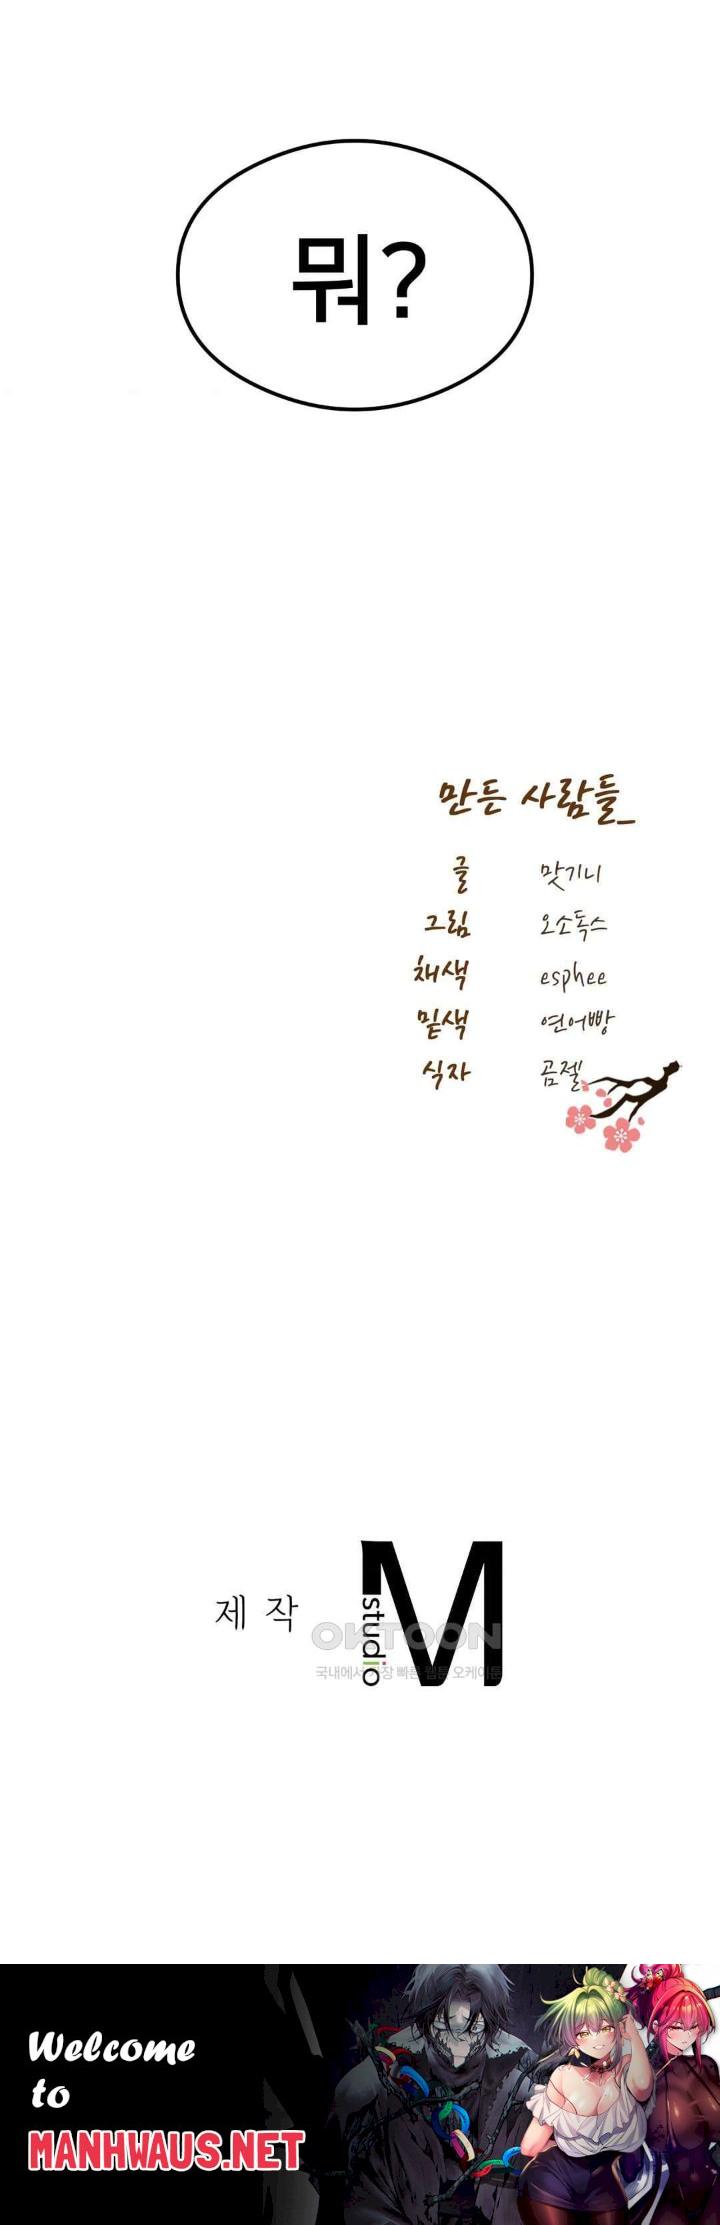 뭐?
만든 사람들_
글 맛기니
그림 오소독스
채색 esphee
밑색 연어빵
식자 곰젤
제작
M
studio
OKTOON
국내에서 가장 빠른 웹툰 오케이툰
Welcome
to
MANHWAUS.NET